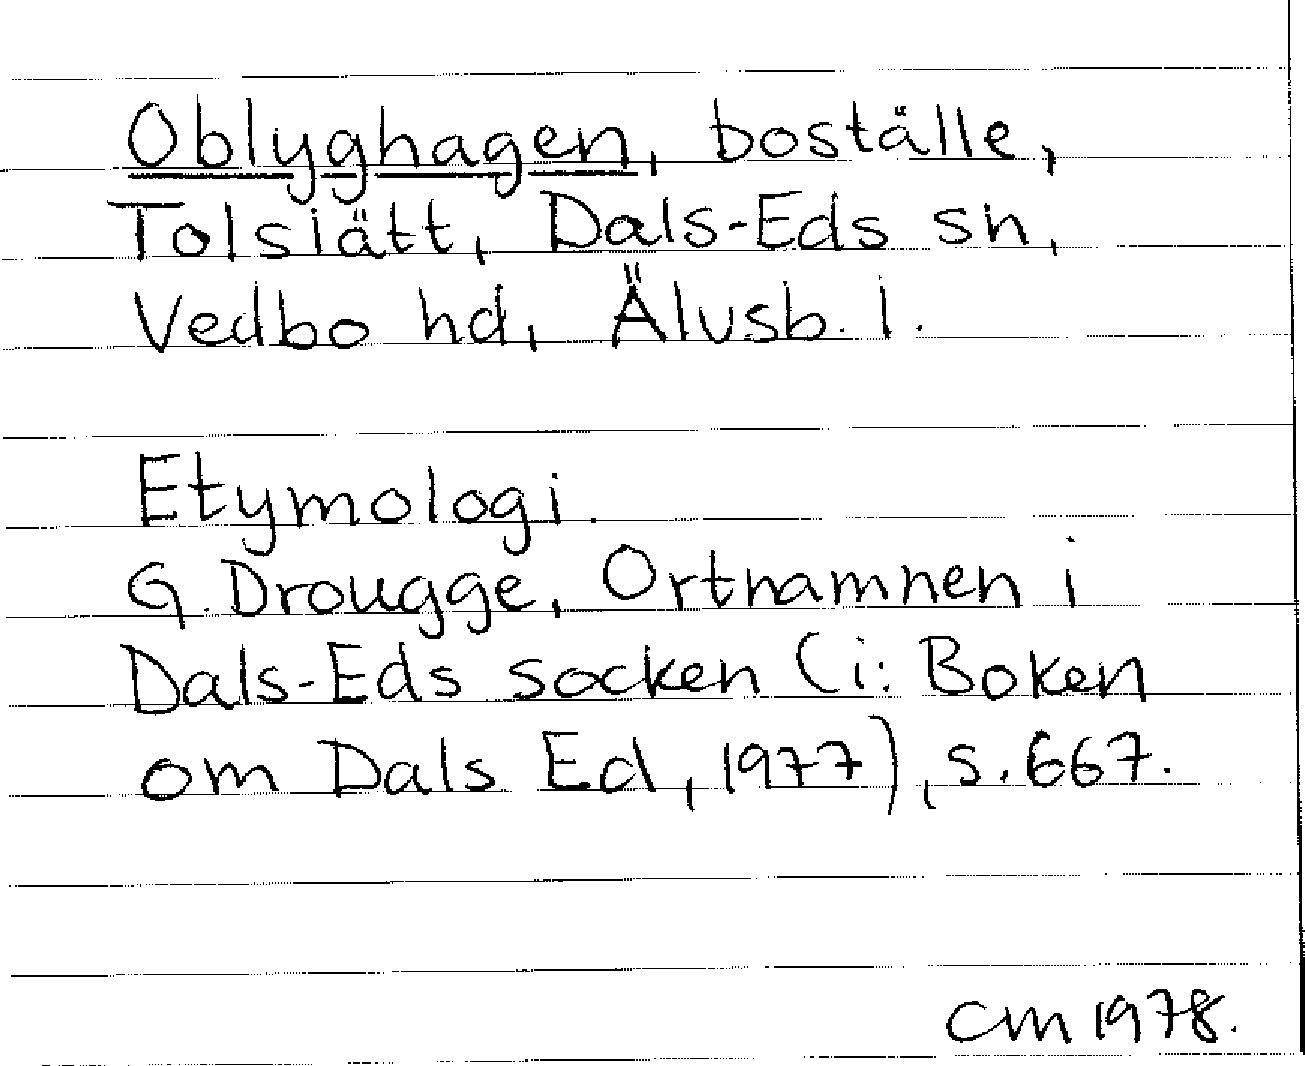 Oblyghagen, boställe,
Tolslätt, Dals-Eds sn,
Vedbo hd, Älvsb. l.
Etymologi.
G. Drougge, Ortnamnen i
Dals-Eds socken (i: Boken
om Dals Ed, 1977), s. 667.
CM 1978.